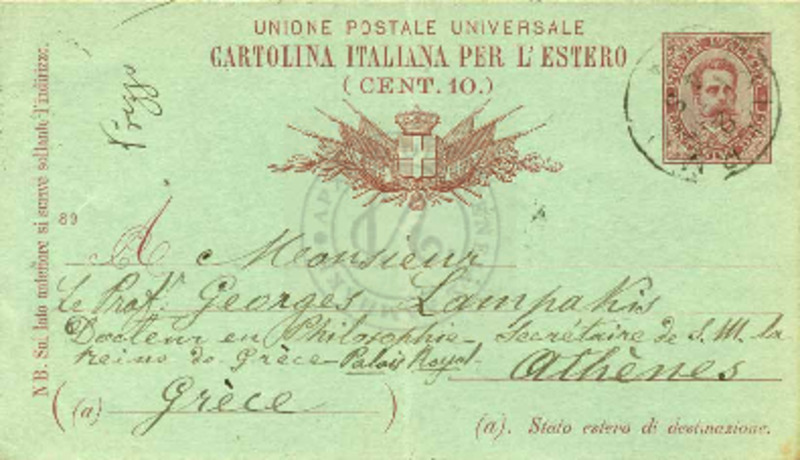 UNIONE POSTALE UNIVERSALE
CARTOLINA ITALIANA PER L'ESTERO
(CENT. 10.)
NB. Su lato anteriore si scrive soltanto l'indirizzo.
89
A Monsieur
Le Profr Georges Lampakis
Docteur en Philosophie - Secrétaire de S. M. la
reine de Grèce - Palais Royal
Athènes
(a) Grèce
(a). Stato estero di destinazione.